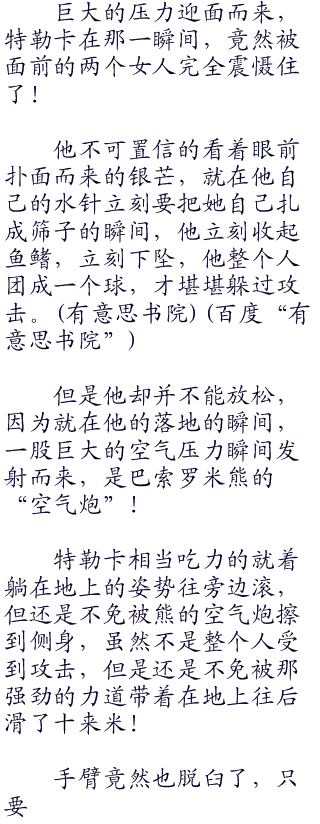 巨大的压力迎面而来，
特勒卡在那一瞬间，竟然被
面前的两个女人完全震慑住
了！
他不可置信的看着眼前
扑面而来的银芒，就在他自
己的水针立刻要把她自己扎
成筛子的瞬间，他立刻收起
鱼鳍，立刻下坠，他整个人
团成一个球，才堪堪躲过攻
击。(有意思书院)(百度“有
意思书院”)
但是他却并不能放松，
因为就在他的落地的瞬间，
一股巨大的空气压力瞬间发
射而来，是巴索罗米熊的
“空气炮”！
特勒卡相当吃力的就着
躺在地上的姿势往旁边滚，
但还是不免被熊的空气炮擦
到侧身，虽然不是整个人受
到攻击，但是还是不免被那
强劲的力道带着在地上往后
滑了十来米！
手臂竟然也脱臼了，只
要